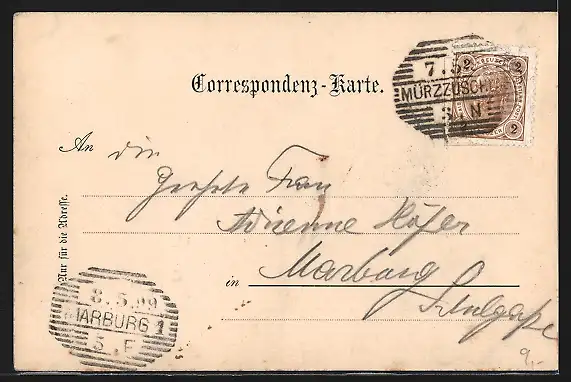 Correspondenz-Karte.
7.5
MÜRZZUSCHLAG
3. N
2 2
2
An die
Geehrte Frau
Adrienne Höfer
in Marburg
Schulgasse
Nur für die Adresse.
8.5.99
MARBURG 1
5. F
9,-